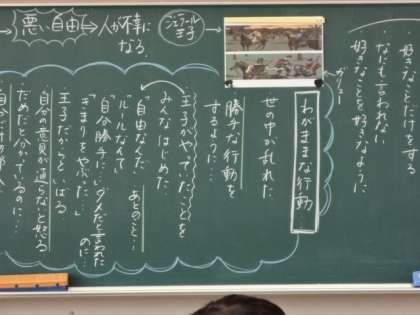 好きなことだけをする
なにも言われない
好きなことを好きなように
わがままな行動
世の中が乱れた
勝手な行動を
するように
王子がやていたことを
みんなはじめた。
「自由なんだ」
あとのこと…
「ルールなんて」
「自分勝手…」ダメだと言われた
「きまりをやぶた…」のに…
王子だからといばる
自分の意見が通らないと怒る
だめだと分かているのに…
ジェラール
王子
悪い自由→人が不幸に
なる。